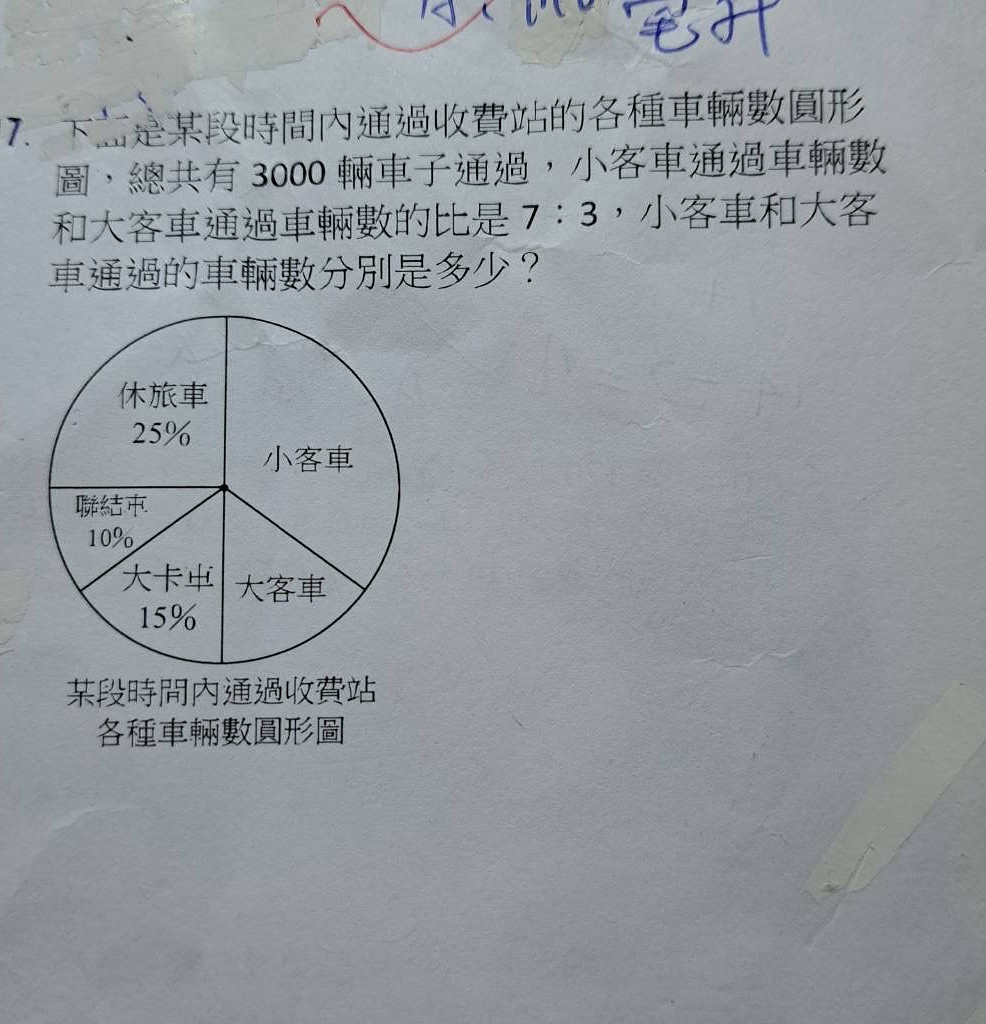 毫升
7. 下面是某段時間內通過收費站的各種車輛數圓形
圖，總共有 3000 輛車子通過，小客車通過車輛數
和大客車通過車輛數的比是 7：3，小客車和大客
車通過的車輛數分別是多少？
休旅車
25%
小客車
聯結車
10%
大卡車
15%
大客車
某段時間內通過收費站
各種車輛數圓形圖